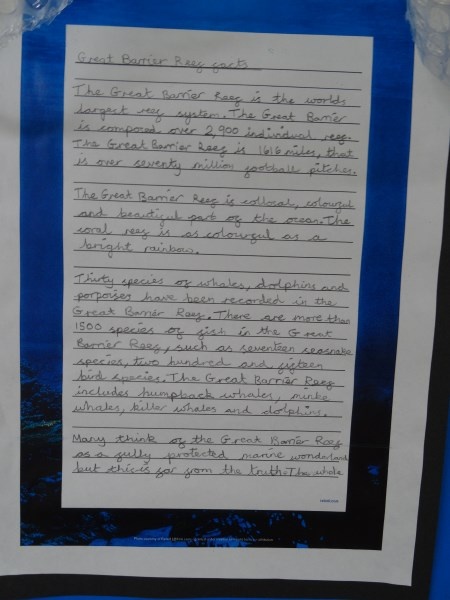 Great Barrier Reef facts
The Great Barrier Reef is the worlds
largest reef system. The Great Barrier
is composed over 2,900 individual reefs.
The Great Barrier Reef is 1616 miles, that
is over seventy million football pitches.
The Great Barrier Reef is collosal, colourful
and beautiful part of the ocean. The
coral reef is as colourful as a
bright rainbow.
Thirty species of whales, dolphins and
porpoises have been recorded in the
Great Barrier Reef. There are more than
1500 species of fish in the Great
Barrier Reef, such as seventeen seasnake
species, two hundred and fifteen
bird species. The Great Barrier Reef
includes humpback whales, minke
whales, killer whales and dolphins.
Many think of the Great Barrier Reef
as a fully protected marine wonderland
but this is far from the truth. The whole